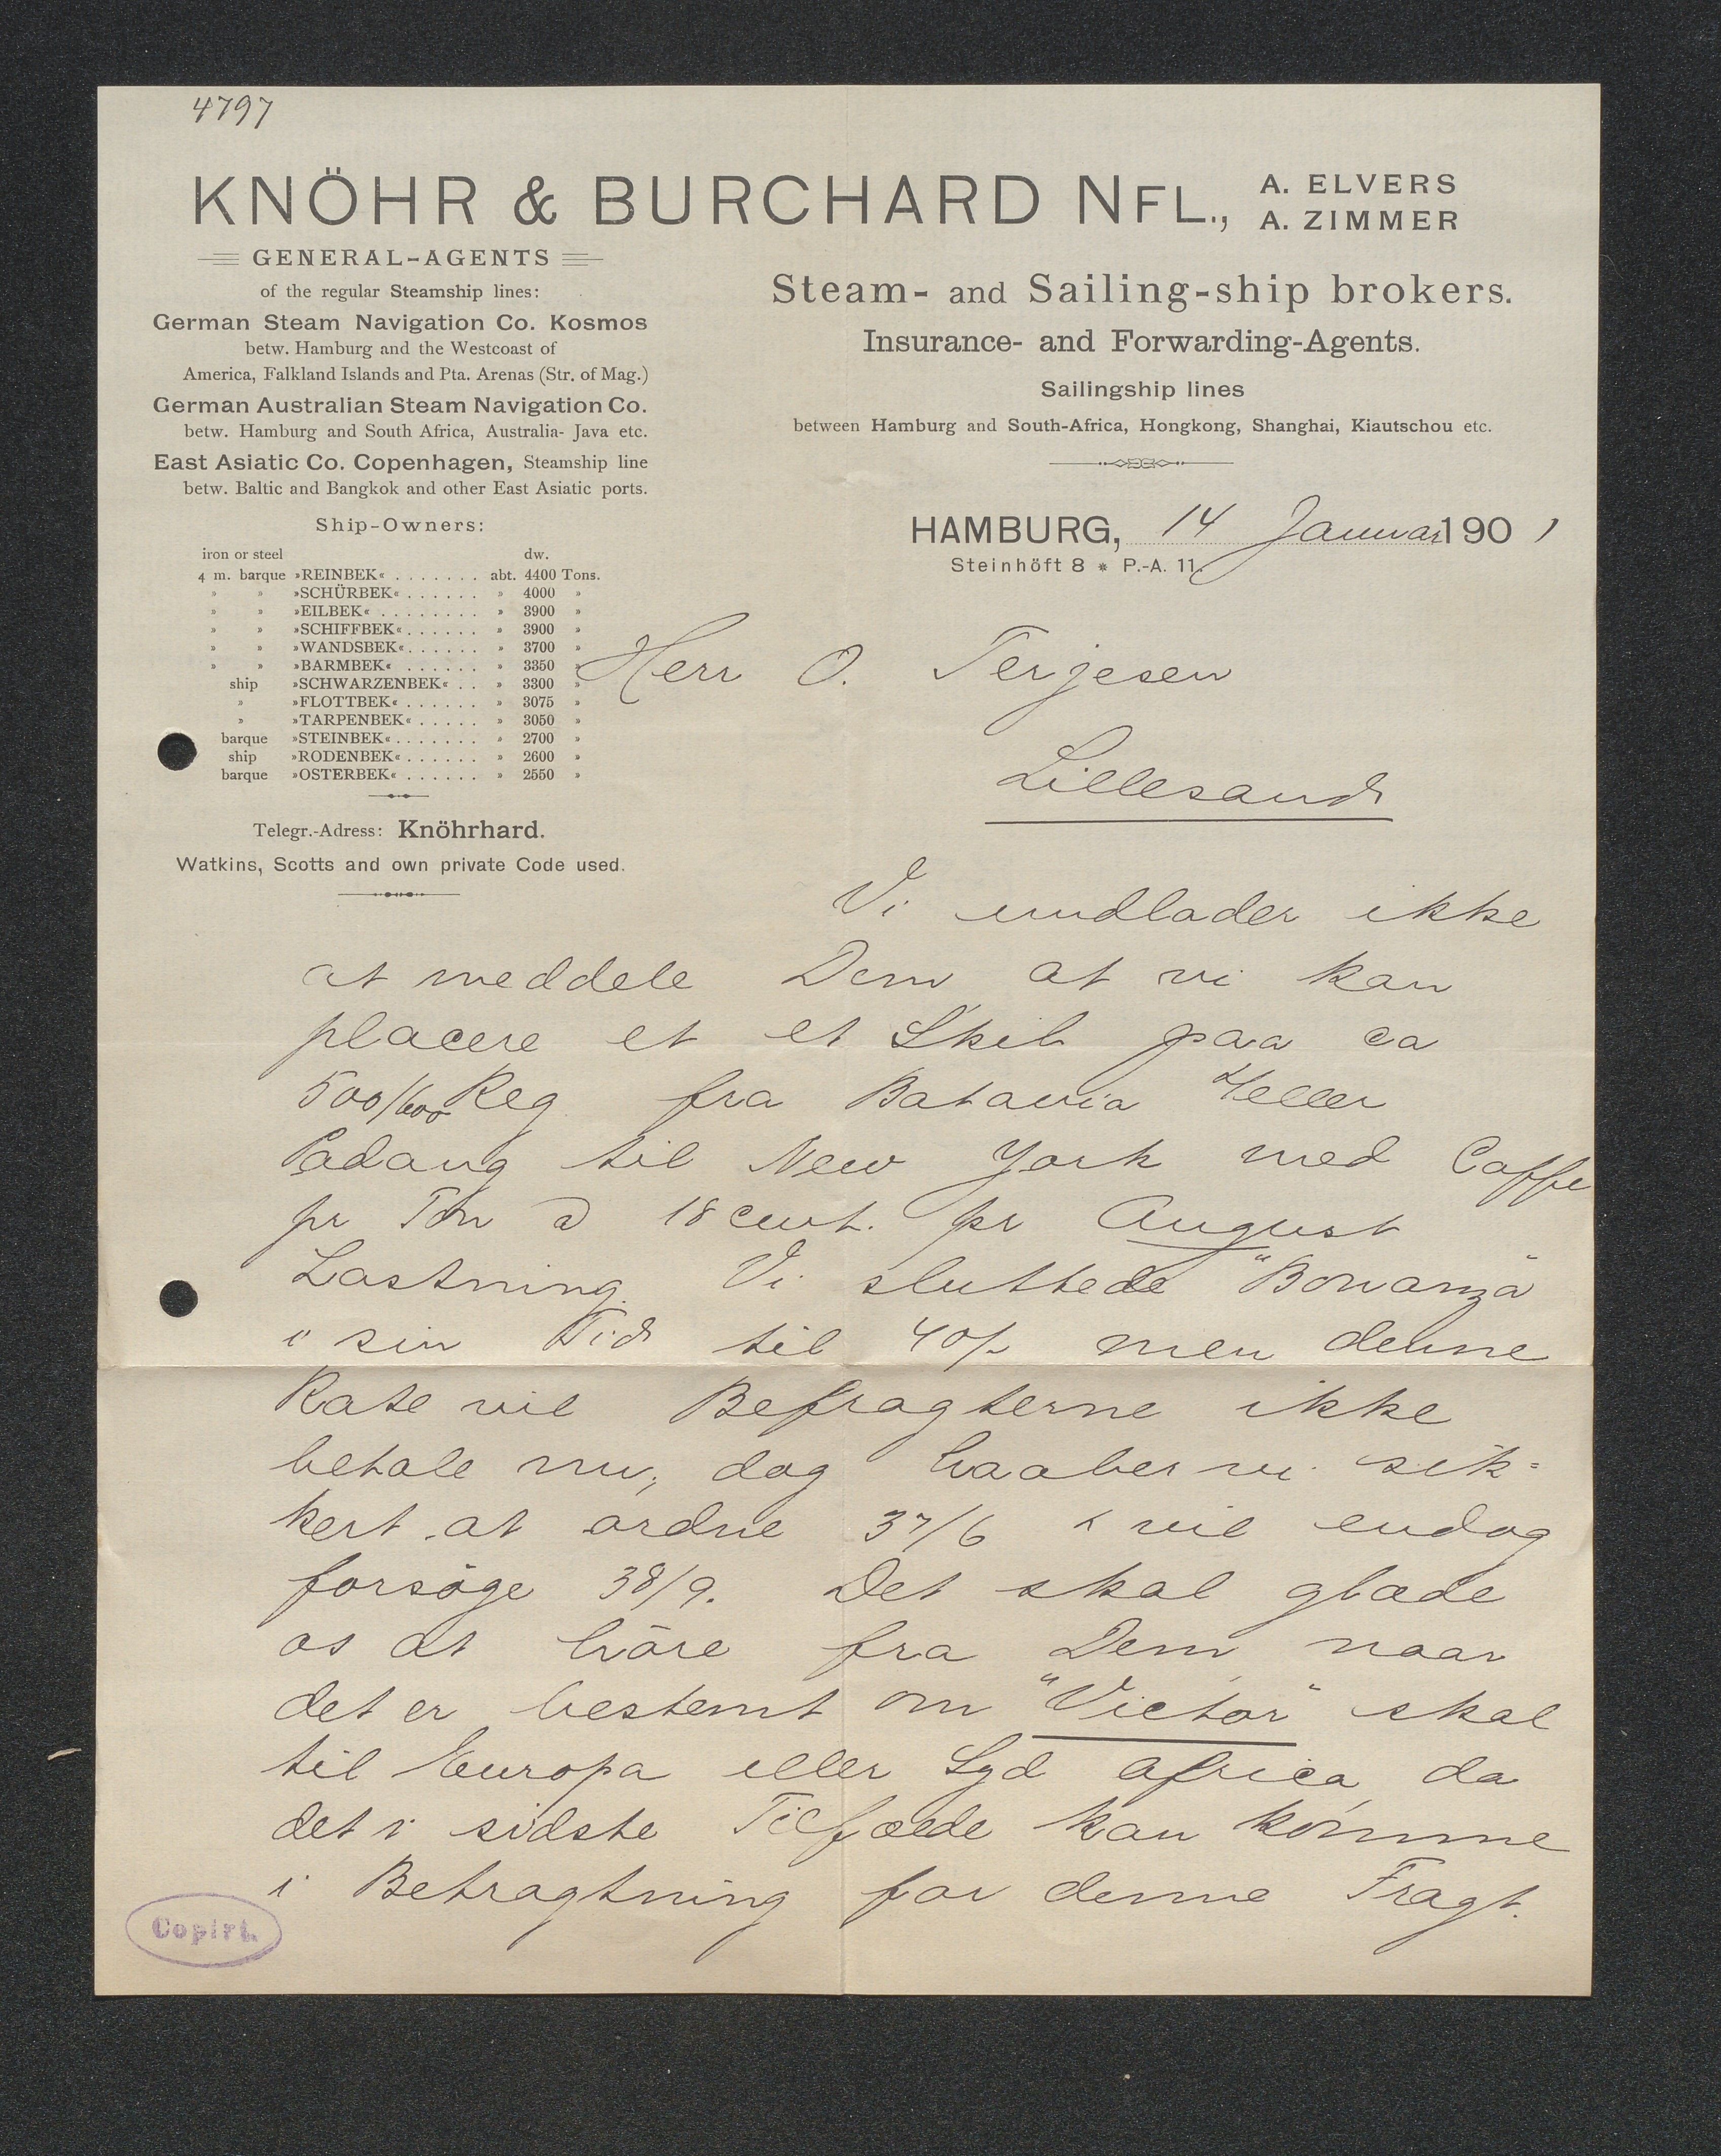 4797
KNÖHR & BURCHARD NFL., A. ELVERS
A. ZIMMER
GENERAL-AGENTS
of the regular Steamship lines:
German Steam Navigation Co. Kosmos
betw. Hamburg and the Westcoast of
America, Falkland Islands and Pta. Arenas (Str. of Mag.)
German Australian Steam Navigation Co.
betw. Hamburg and South Africa, Australia- Java etc.
East Asiatic Co. Copenhagen, Steamship line
betw. Baltic and Bangkok and other East Asiatic ports.
Ship-Owners:
iron or steel dw.
4 m. barque »REINBEK« . . . . . . . abt. 4400 Tons.
» » »SCHÜRBEK« . . . . . . » 4000 »
» » »EILBEK« . . . . . . . . » 3900 »
» » »SCHIFFBEK« . . . . . . » 3900 »
» » »WANDSBEK« . . . . . . » 3700 »
» » »BARMBEK« . . . . . . » 3350 »
ship »SCHWARZENBEK« . . » 3300 »
» »FLOTTBEK« . . . . . . » 3075 »
» »TARPENBEK« . . . . . » 3050 »
barque »STEINBEK« . . . . . . . » 2700 »
ship »RODENBEK« . . . . . . » 2600 »
barque »OSTERBEK« . . . . . . » 2550 »
Telegr.-Adress: Knöhrhard.
Watkins, Scotts and own private Code used.
Steam- and Sailing-ship brokers.
Insurance- and Forwarding-Agents.
Sailingship lines
between Hamburg and South-Africa, Hongkong, Shanghai, Kiautschou etc.
HAMBURG, 14 Januar 1901
Steinhöft 8 * P.-A. 11.
Herr O. Terjesen
Lillesand
Vi undlader ikke
at meddele Dem at vi kan
placere et et Skib paa ca
500/600 Reg fra Batavia &eller
Padang til New York med Caffe
pr Ton a 18 cwt. pr August
Lastning. Vi sluttede "Bonanza"
i sin Tid til 40/- men denne
Rate vil Befragterne ikke
betale nu, dog haaber vi sik=
kert at ordne 37/6 & vil endog
forsöge 38/9. Det skal glæde
os at höre fra Dem naar
det er bestemt om "Victor" skal
til Europa eller Syd Africa, da
det i sidste Tilfælde kan komme
i Betragtning for denne Fragt.
Copirt.